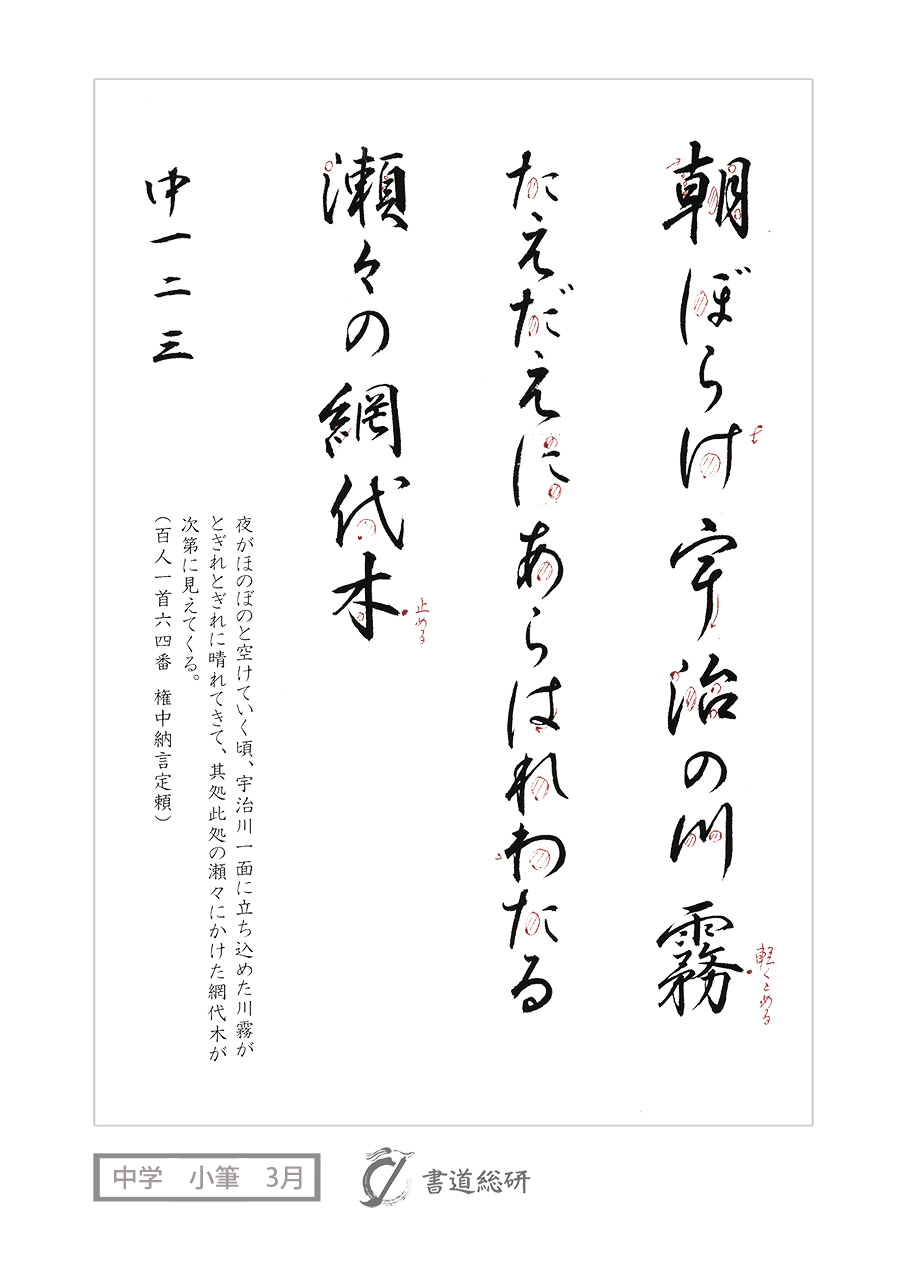 朝ぼらけ宇治の川霧
たえだえにあらはれわたる
瀬々の網代木
中一二三
軽くとめる
止める
夜がほのぼのと空けていく頃、宇治川一面に立ち込めた川霧が
とぎれとぎれに晴れてきて、其処此処の瀬々にかけた網代木が
次第に見えてくる。
（百人一首六四番　権中納言定頼）
中学　小筆　3月
書道総研